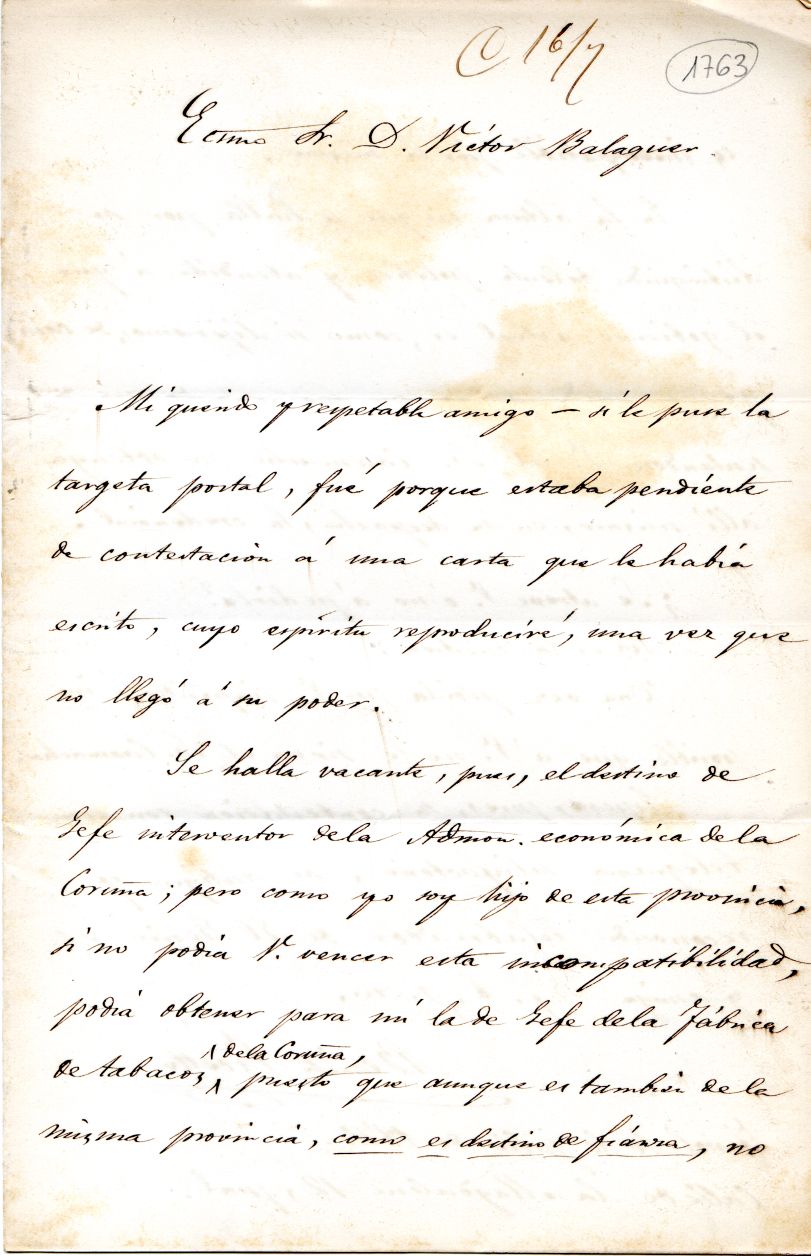 C 16/7
1763
Ecmo Sr. D. Víctor Balaguer.
Mi querido y respetable amigo — si le puse la
targeta postal, fué porque estaba pendiente
de contestación á una carta que le había
escrito, cuyo espíritu reproduciré, una vez que
no llegó á su poder.
Se halla vacante, pues, el destino de
Gefe interventor de la Admon. económica de la
Coruña; pero como yo soy hijo de esta provincia,
si no podía V. vencer esta incompatibilidad,
podía obtener para mí la de Gefe de la Fábrica
de tabacos, de la Coruña,
puesto que aunque es tambien de la
misma provincia, como es destino de fianza, no